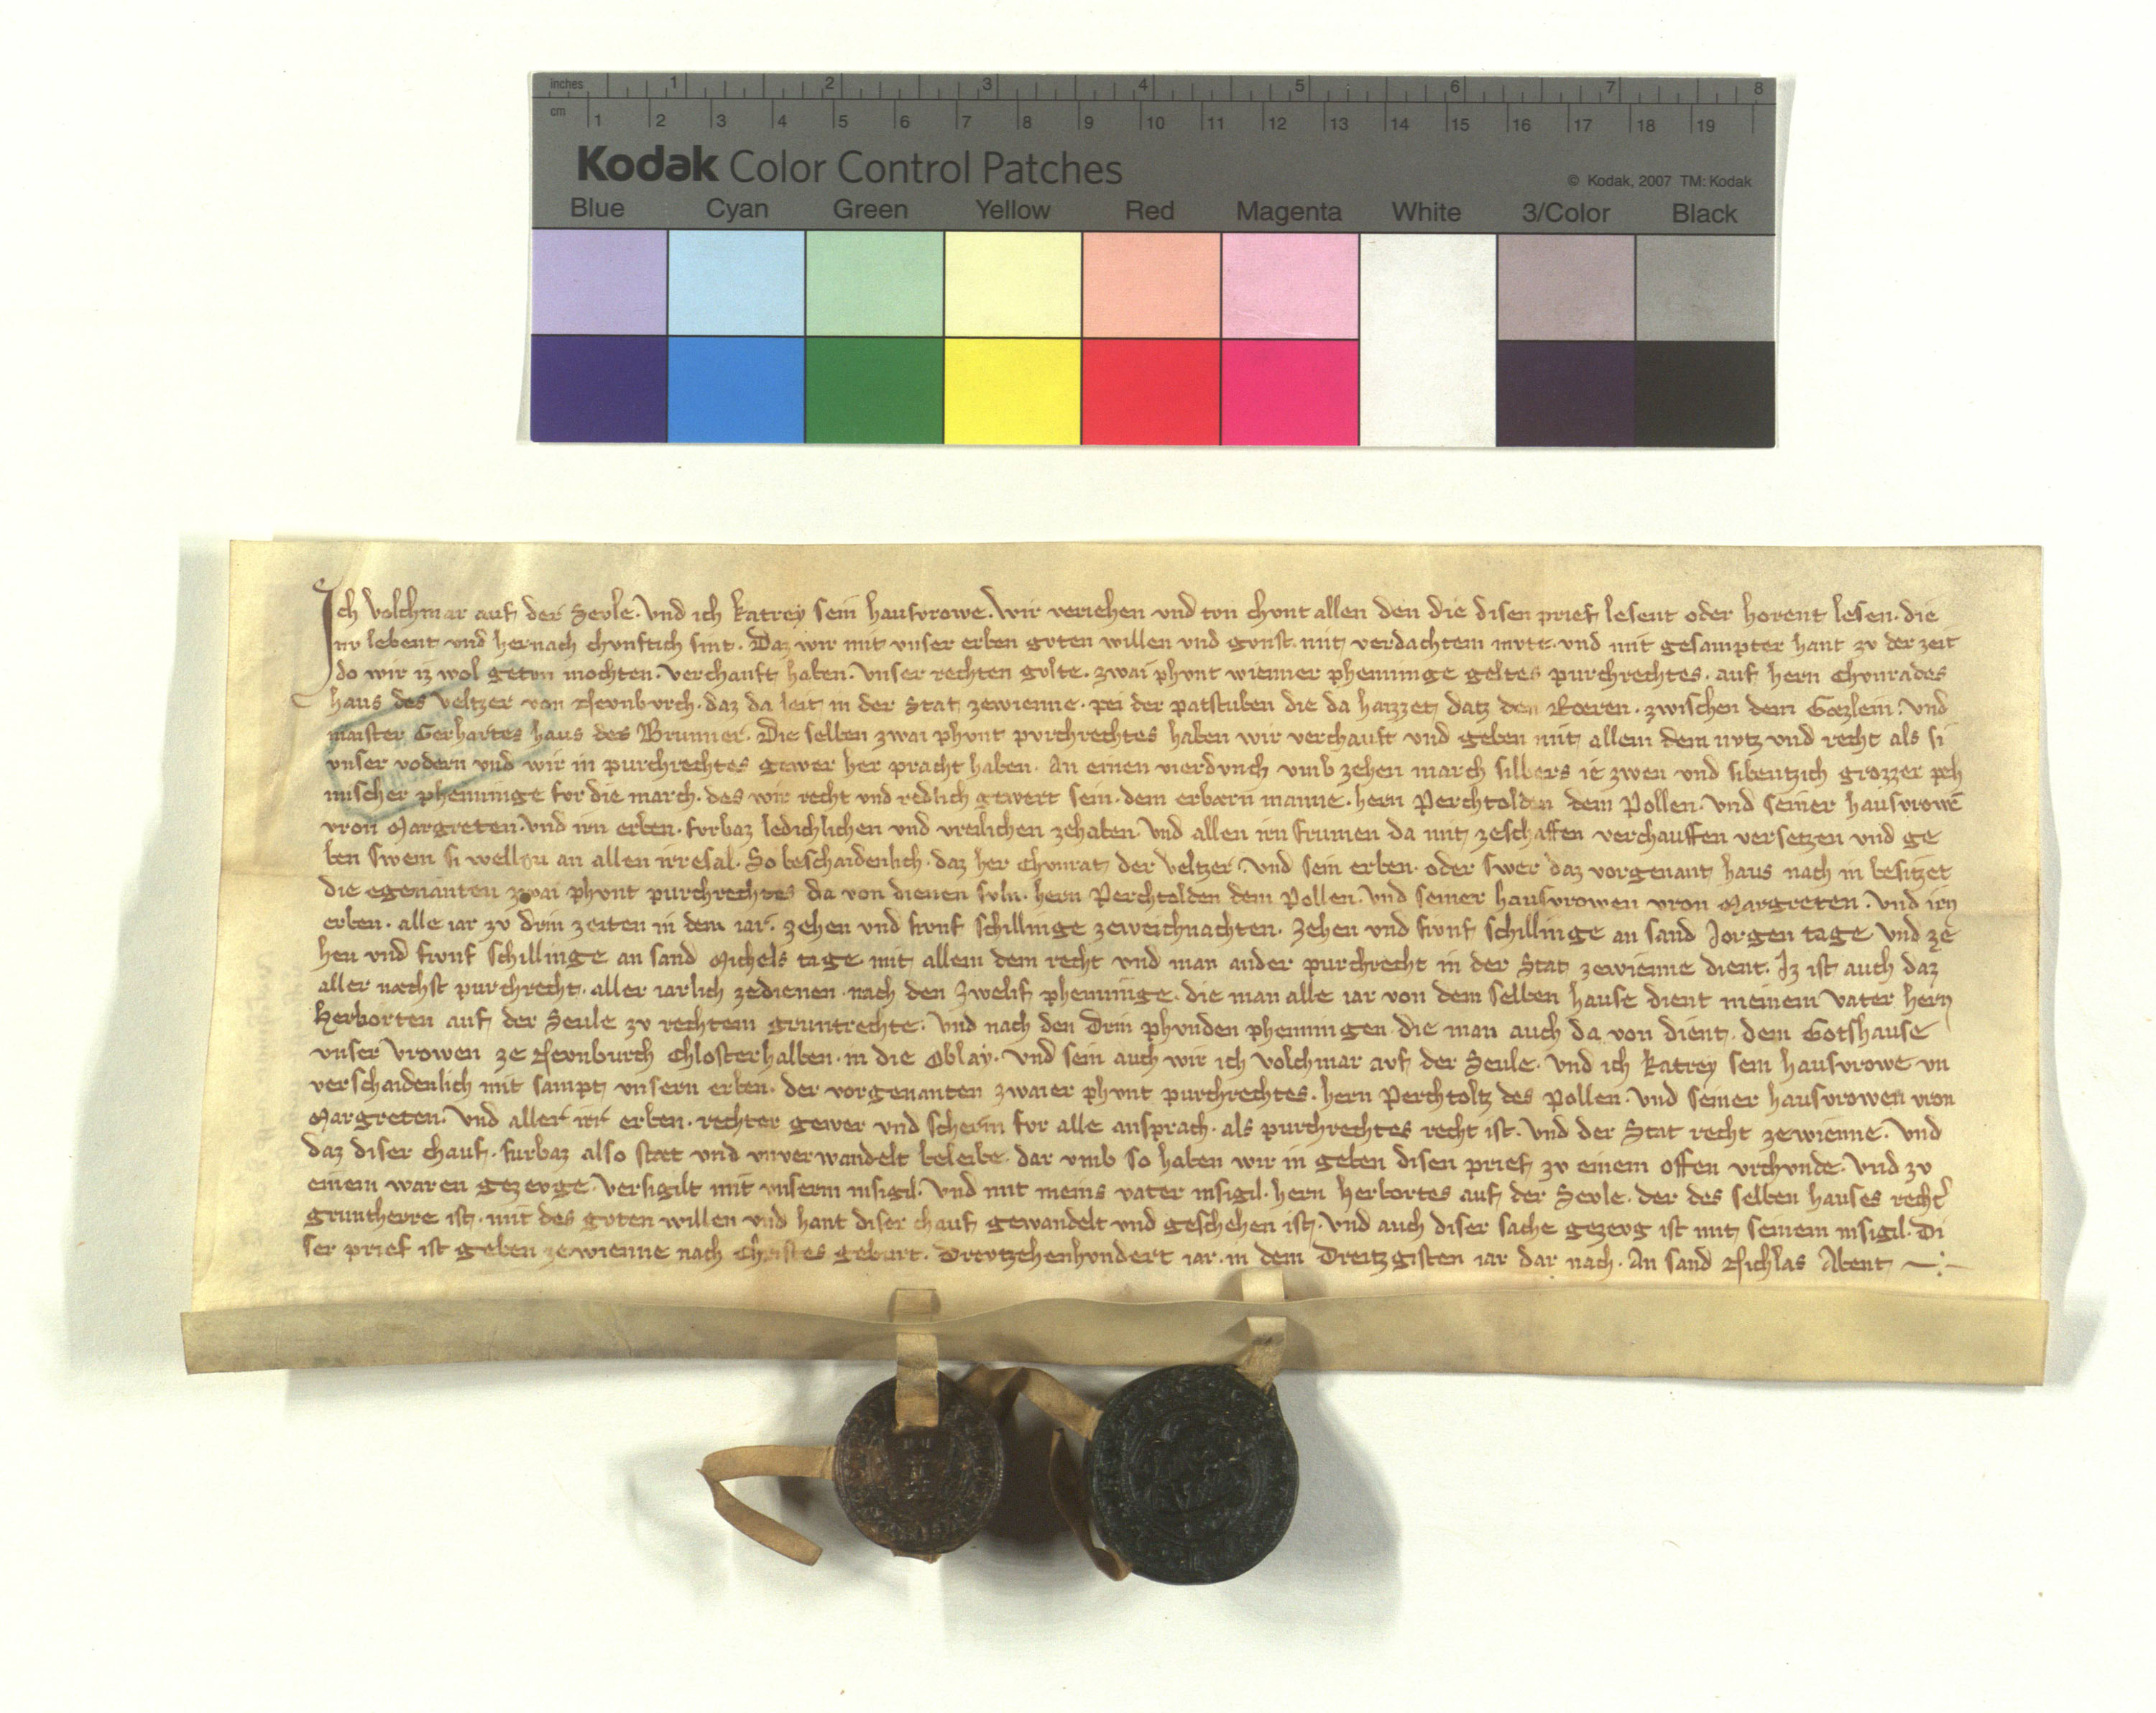 inches 1 2 3 4 5 6 7 8
cm 1 2 3 4 5 6 7 8 9 10 11 12 13 14 15 16 17 18 19
Kodak Color Control Patches
© Kodak, 2007 TM: Kodak
Blue Cyan Green Yellow Red Magenta White 3/Color Black
Ich Volchmar auf der Sevle. Vnd ich Katrey sein hausvrowe. Wir veriehen vnd tvn chvnt allen den die disen prief lesent oder horent lesen. die
nv lebent vnd hernach chvnftich sint. Daz wir mit vnser erben gvten willen vnd gvnst. mit verdachtem mvte. vnd mit gesampter hant zv der zeit
do wir iz wol getvn mochten. verchauft haben. Vnser rechten gvlte. zwai phvnt wienner phenninge geltes purchrechtes. auf hern Chvnrades
haus des Veltzer von Nevnbvrch. daz da leit in der Stat zewienne. pei der patstuben die da haizzet datz den Roeren. zwischen dem Gözlein. Vnd
maister Gerhartes haus des Brunner. Die selben zwai phvnt pvrchrechtes haben wir verchauft vnd geben mit allem dem nvtz vnd recht als si
vnser vodern vnd wir in purchrechtes gewer her pracht haben. An einen vierdvnch vmb zehen march silbers ie zwen vnd sibentzich grozzer peh
mischer phenninge for die march. des wir recht vnd redlich gewert sein. dem erbærn manne. hern Perchtolden dem Pollen. Vnd seiner hausvrowē
vron Margreten. Vnd irn erben. furbaz ledichlichen vnd vreilichen zehaben. Vnd allen irn frumen da mit zeschaffen verchauffen versetzen vnd ge
ben swem si wellen an allen irresal. So beschaidenlich. daz her Chvnrat der Veltzer. Vnd sein erben. oder swer daz vorgenant haus nach in besitzet
die egenanten zwai phvnt purchrechtes da von dienen svln. hern Perchtolden dem Pollen. Vnd seiner hausvrowen vron Margreten. Vnd irn
erben. alle iar zv drin zeiten in dem iar. zehen vnd fvnf schillinge zeweichnachten. Zehen vnd fvnf schillinge an sand Jorgen tage Vnd ze
hen vnd fvnf schillinge an sand Michels tage mit allem dem recht vnd man ander purchrecht in der Stat zewienne dient. Iz ist auch daz
aller næchst purchrecht. aller iarlich zedienen. nach den Zwelif phenninge. die man alle iar von dem selben hause dient meinem vater hern
Herborten auf der Seule zv rechtem gruntrechte. Vnd nach den drin phvnden phenningen die man auch da von dient. dem Gotshause
vnser Vrowen ze Nevnburch Chlosterhalben. in die Oblay. Vnd sein auch wir ich Volchmar avf der Seule. Vnd ich Katrey sein hausvrowe vn
verschaidenlich mit sampt vnsern erben. der vorgenanten zwaier phvnt purchrechtes. hern Perchtoltz des Pollen. Vnd seiner hausvrowen vron
Margreten. Vnd aller irr erben. rechter gewer vnd scherm for alle ansprach. als purchrechtes recht ist. Vnd der Stat recht zewienne. Vnd
daz diser chauf. furbaz also stæt vnd vnverwandelt beleibe. dar vmb so haben wir in geben disen prief zv einem offen vrchvnde. Vnd zv
einem waren gezevge. Versigilt mit vnserm insigil. Vnd mit meins vater insigil. hern Herbortes auf der Sevle. der des selben hauses recht
gruntherre ist. mit des gvten willen vnd hant diser chauf gewandelt vnd geschehen ist. Vnd auch diser sache gezevg ist mit seinem insigil. Di
ser prief ist geben zewienne nach Christes geburt. Drevtzehenhvndert iar. in dem Dreitzgisten iar dar nach. An sand Nichlas Abent